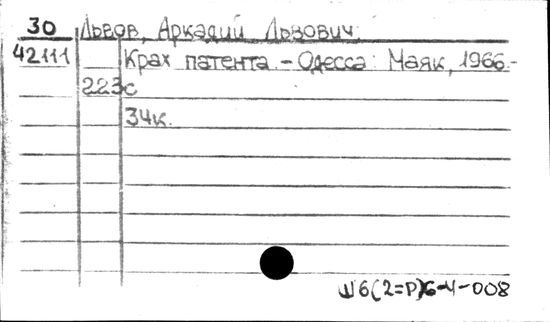 30 Львов, Аркадий Львович.
42111 Крах патента - Одесса: Маяк, 1966.-
223с
34к.
Ш6(2=Р)6-4-008